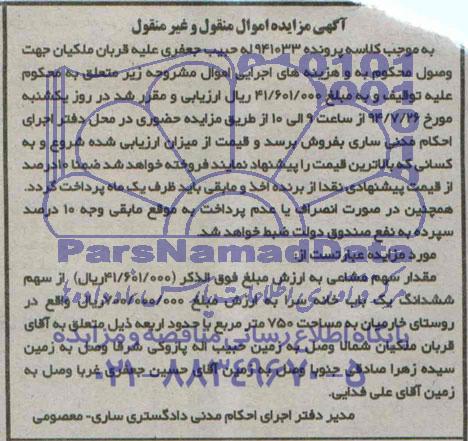 آگهی مزایده اموال منقول و غیر منقول
به موجب کلاسه پرونده ۹۴۱۰۳۳ له حبیب جعفری علیه قربان ملکیان جهت
وصول محکوم به و هزینه های اجرایی اموال مشروحه زیر متعلق به محکوم
علیه توقیف و به مبلغ ۴۱/۶۰۱/۰۰۰ ریال ارزیابی و مقرر شد در روز یکشنبه
مورخ ۹۴/۷/۲۶ از ساعت ۹ الی ۱۰ از طریق مزایده حضوری در محل دفتر اجرای
احکام مدنی ساری بفروش برسد و قیمت از میزان ارزیابی شده شروع و به
کسانی که بالاترین قیمت را پیشنهاد نمایند فروخته خواهد شد ضمنا ۱۰درصد
از قیمت پیشنهادی نقدا از برنده اخذ و مابقی باید ظرف یک ماه پرداخت گردد.
همچنین در صورت انصراف یا عدم پرداخت به موقع مابقی وجه ۱۰ درصد
سپرده به نفع صندوق دولت ضبط خواهد شد.
مورد مزایده عبارتست از:
مقدار سهم مشاعی به ارزش مبلغ فوق الذکر (۴۱/۶۰۱/۰۰۰ریال) از سهم
ششدانگ یک باب خانه سرا به ارزش مبلغ واقع در
روستای خارمیان به مساحت ۷۵۰ متر مربع با حدود اربعه ذیل متعلق به آقای
قربان ملکیان شمالا وصل به زمین حبیب اله پازوکی شرقا وصل به زمین
سیده زهرا صادقی جنوبا وصل به زمین آقای حسین جعفری غربا وصل به
زمین آقای علی فدایی.
مدیر دفتر اجرای احکام مدنی دادگستری ساری- معصومی
ParsNamadData
پایگاه اطلاع رسانی مناقصه و مزایده
۰۲۱-۸۸۳۴۹۶۷۰-۵